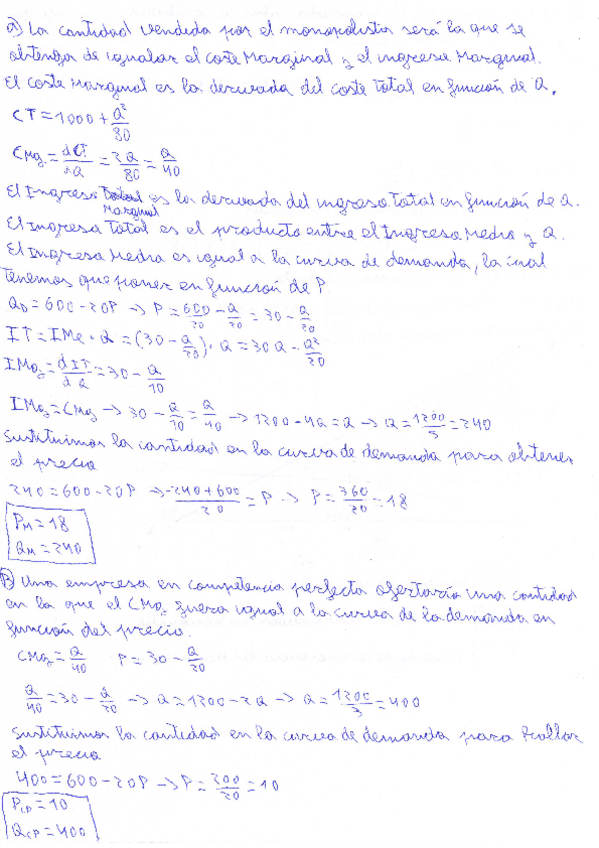 a) La cantidad vendida por el monopolista será la que se
obtenga de igualar el coste Marginal y el ingreso Marginal.
El coste Marginal es la derivada del coste Total en función de Q.
CT = 1000 + Q²/80
CMg = dCT/dQ = 2Q/80 = Q/40
El Ingreso Marginal es la derivada del ingreso Total en función de Q.
El Ingreso Total es el producto entre el Ingreso Medio y Q.
El Ingreso Medio es igual a la curva de demanda, la cual
Tenemos que poner en función de P
QD = 600 - 20P → P = 600/20 - Q/20 = 30 - Q/20
IT = IMe · Q = (30 - Q/20) · Q = 30Q - Q²/20
IMg = dIT/dQ = 30 - Q/10
IMg = CMg → 30 - Q/10 = Q/40 → 1200 - 4Q = Q → Q = 1200/5 = 240
Sustituimos la cantidad en la curva de demanda para obtener
el precio
240 = 600 - 20P → -240 + 600/20 = P → P = 360/20 = 18
PM = 18
QM = 240
B) Una empresa en competencia perfecta ofertaría una cantidad
en la que el CMg fuera igual a la curva de la demanda en
función del precio.
CMg = Q/40 P = 30 - Q/20
Q/40 = 30 - Q/20 → Q = 1200 - 2Q → Q = 1200/3 = 400
Sustituimos la cantidad en la curva de demanda para hallar
el precio
400 = 600 - 20P → P = 200/20 = 10
PCP = 10
QCP = 400